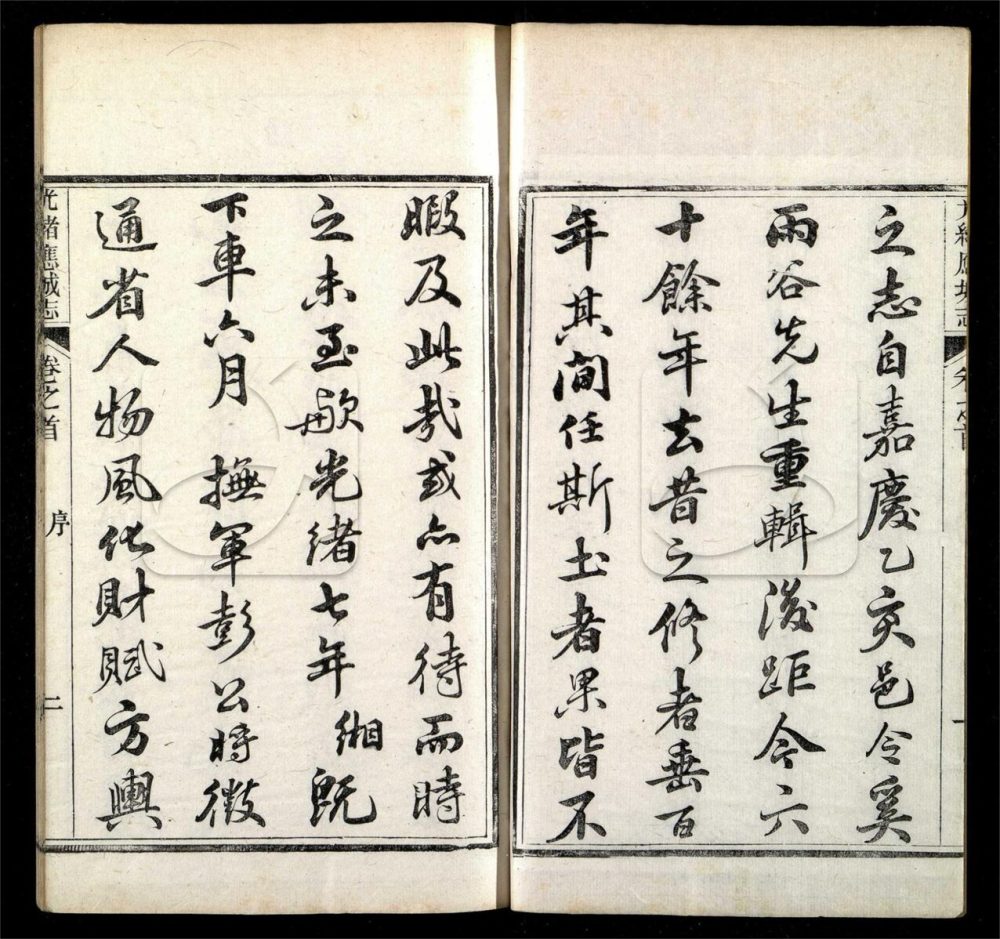 之志自嘉慶乙亥邑令奚
雨谷先生重輯後距今六
十餘年去昔之修者垂百
年其間任斯土者果皆不
暇及此哉或亦有待而時
之未至歟光緒七年緗既
下車六月撫軍彭公時徵
通省人物風化財賦方輿
光緒應城志
卷之首
序
二